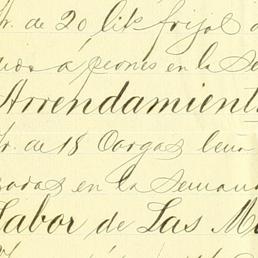 de 20 lit frijol
á peones en la Se
Arrendamient
de 18 Cargas
en la Semana
Labor de Las M